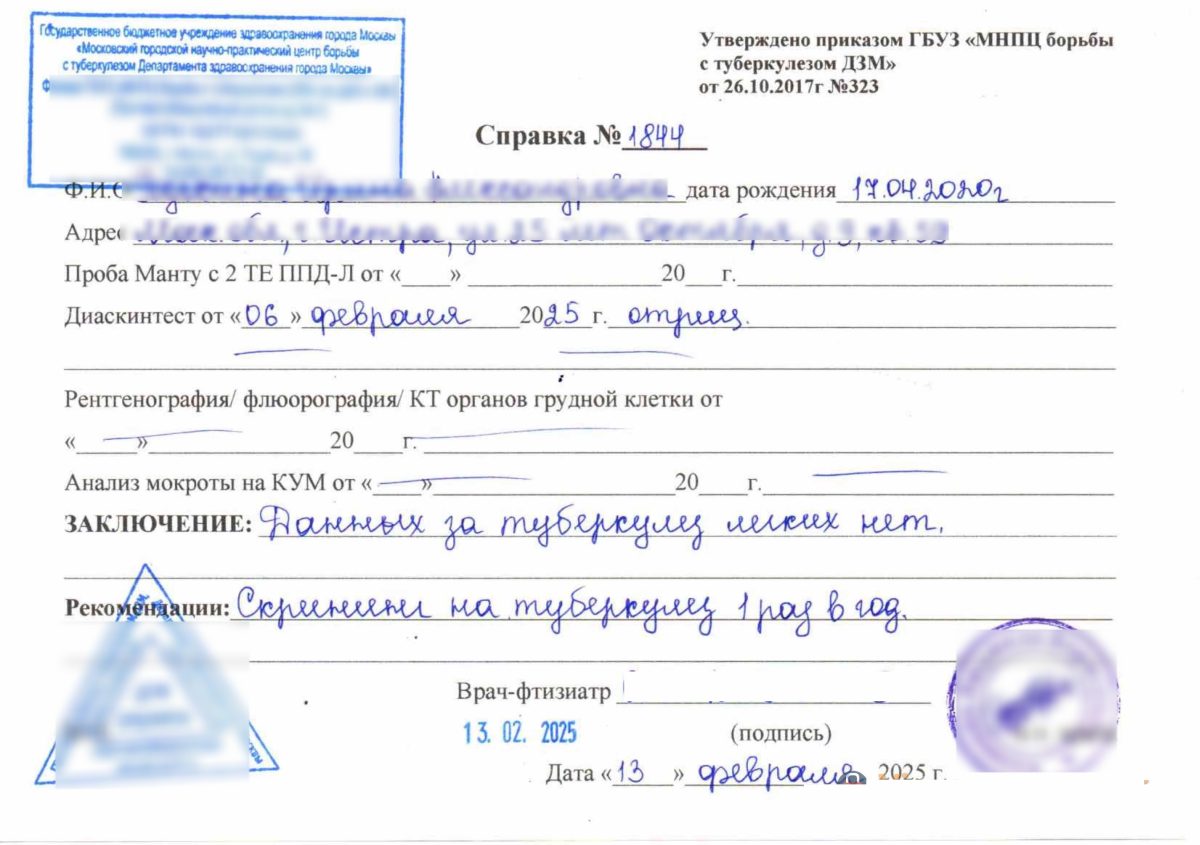 Государственное бюджетное учреждение здравоохранения города Москвы
«Московский городской научно-практический центр борьбы
с туберкулезом Департамента здравоохранения города Москвы»
Утверждено приказом ГБУЗ «МНПЦ борьбы
с туберкулезом ДЗМ»
от 26.10.2017г №323
Справка № 1844
Ф.И.О дата рождения 17.04.2020г
Адрес
Проба Манту с 2 ТЕ ППД-Л от «____» ________ 20___г.
Диаскинтест от «06» февраля 2025 г. отриц.
Рентгенография/ флюорография/ КТ органов грудной клетки от
«_____»________20____г.
Анализ мокроты на КУМ от «____»________20____г.
ЗАКЛЮЧЕНИЕ: Данных за туберкулез легких нет.
Рекомендации: Скрининг на туберкулез 1 раз в год.
Врач-фтизиатр
13. 02. 2025 (подпись)
Дата «13» февраля 2025 г.